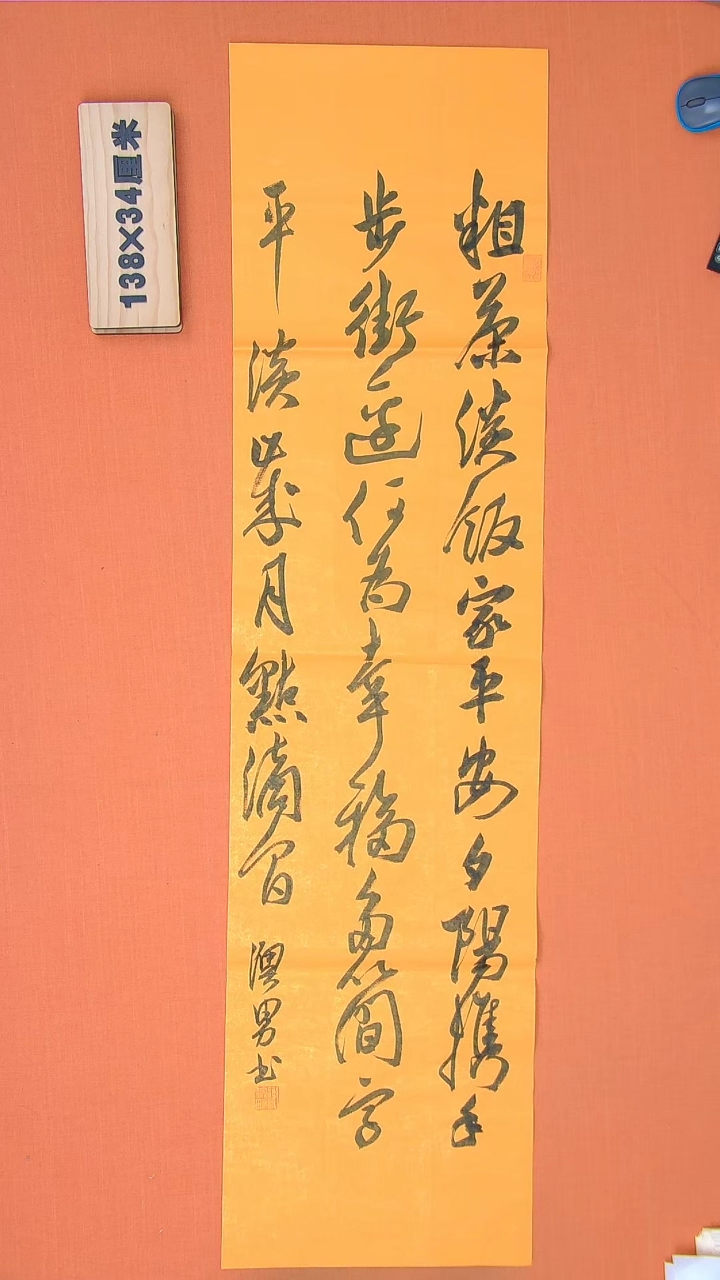 粗茶淡飯家平安夕陽攜手
步街邊何為幸福多簡字
平淡歲月點滴間
男书
138×34厘米